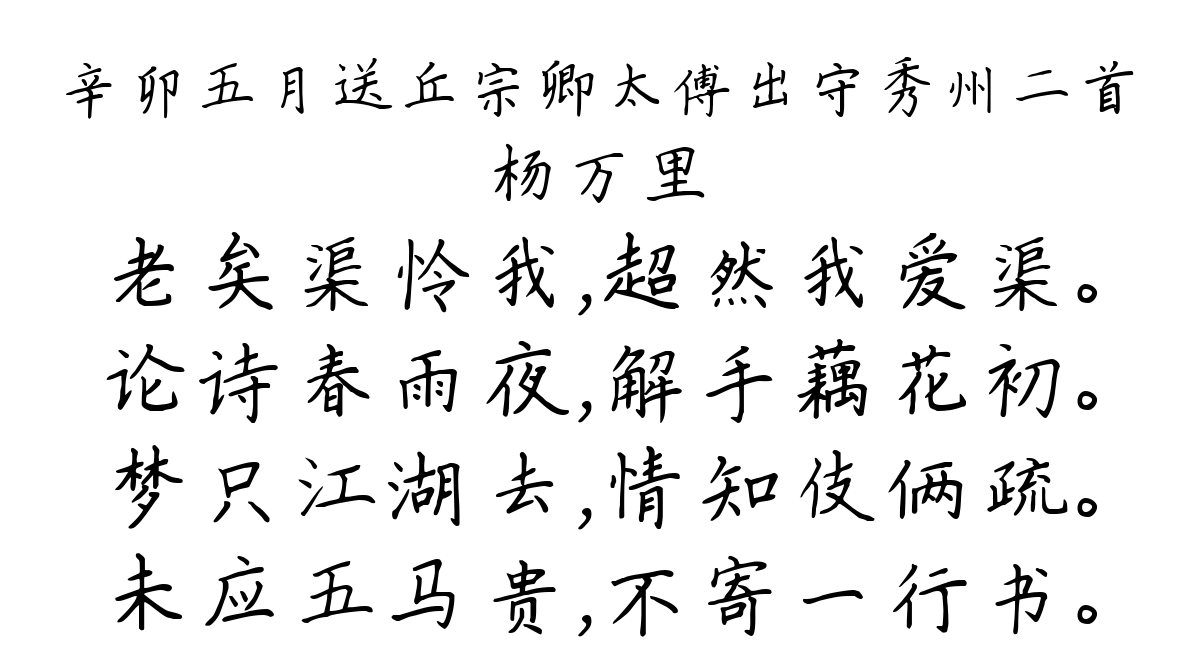 辛卯五月送丘宗卿太傅出守秀州二首
杨万里
老矣渠怜我,超然我爱渠。
论诗春雨夜,解手藕花初。
梦只江湖去,情知伎俩疏。
未应五马贵,不寄一行书。